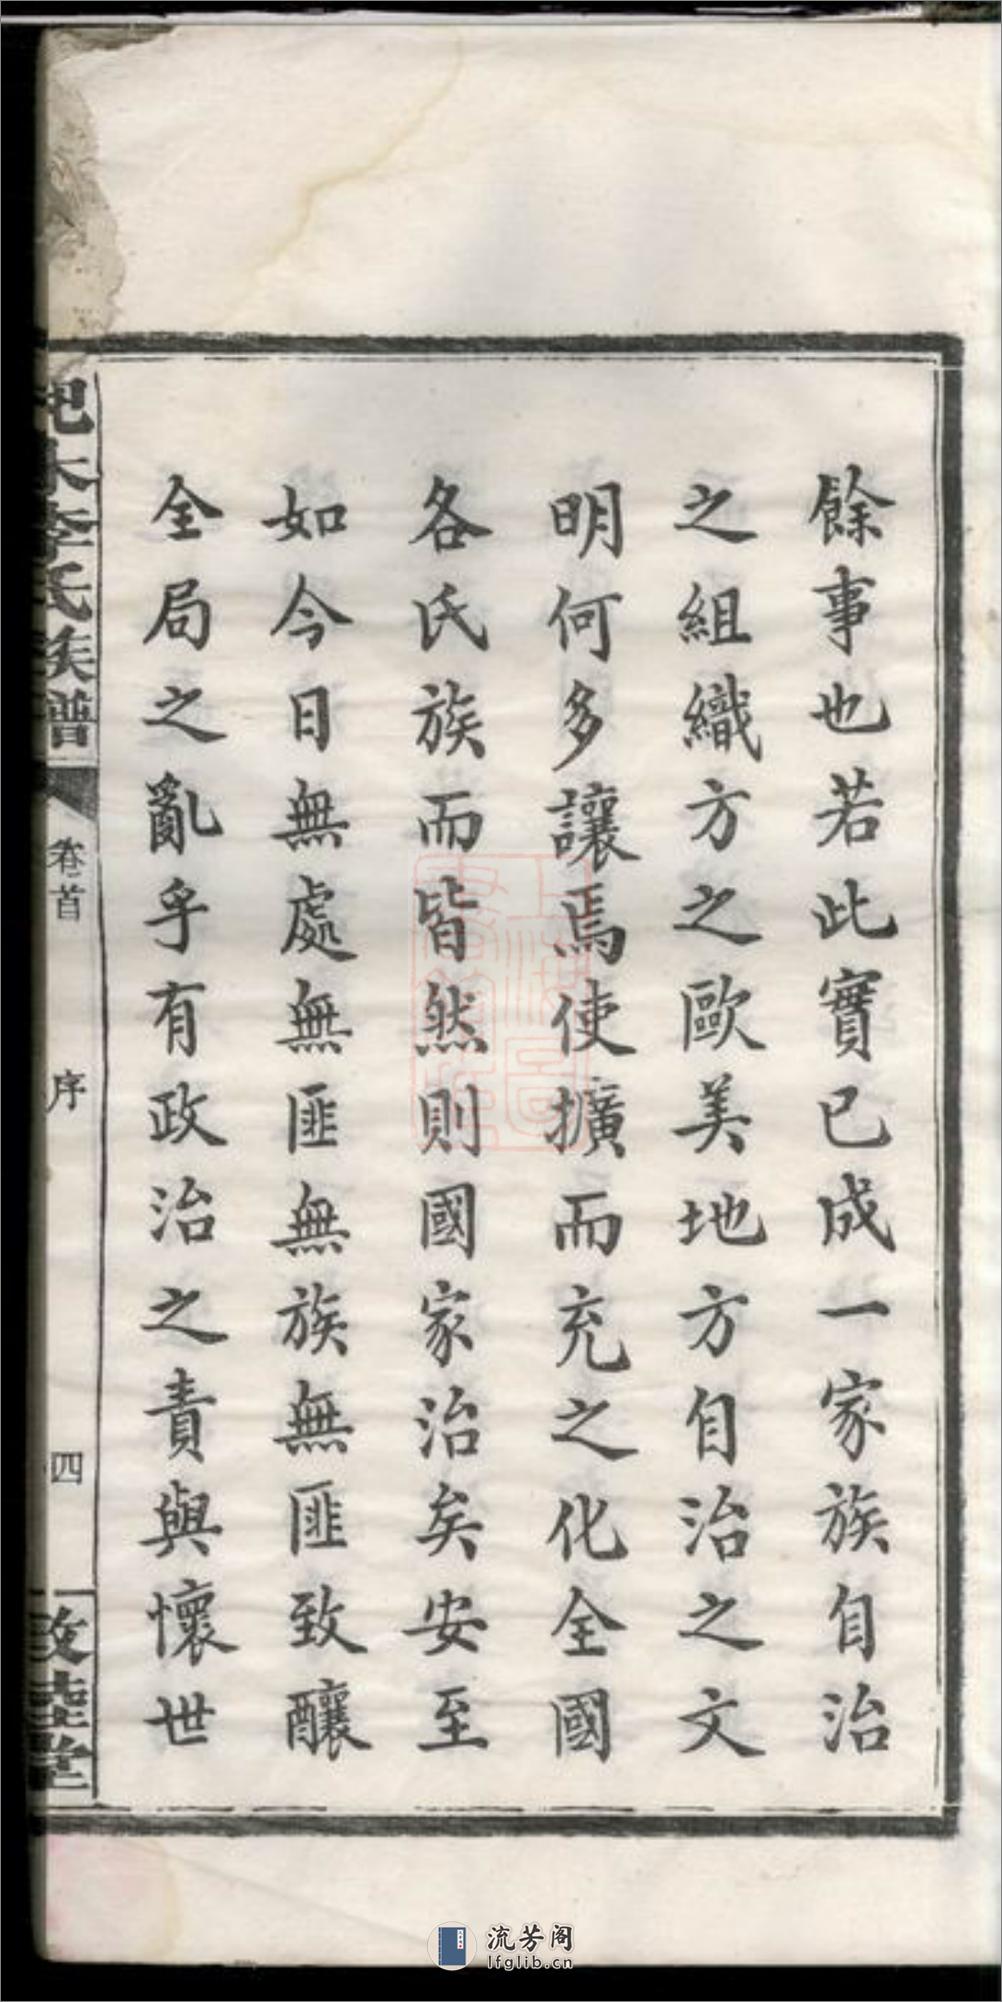 餘事也若此實已成一家族自治
之組織方之歐美地方自治之文
明何多讓焉使擴而充之化全國
各氏族而皆然則國家治矣安至
如今日無處無匪無族無匪致釀
全局之亂乎有政治之責與懷世
李氏族譜
卷首
序
四
堂
流芳阁
lfglib.cn